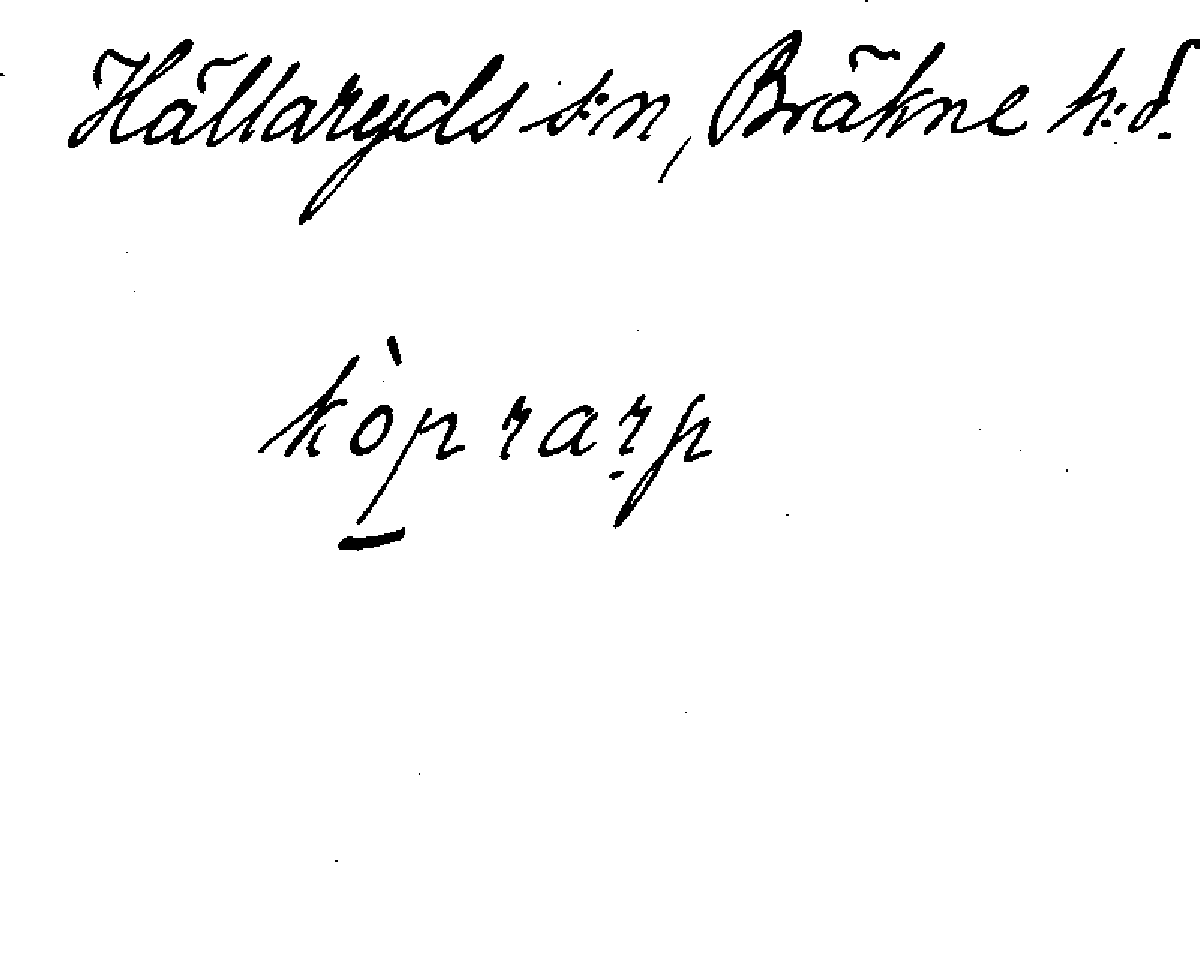 Hällaryds s:n, Bräkne h:d.
kòp rarp